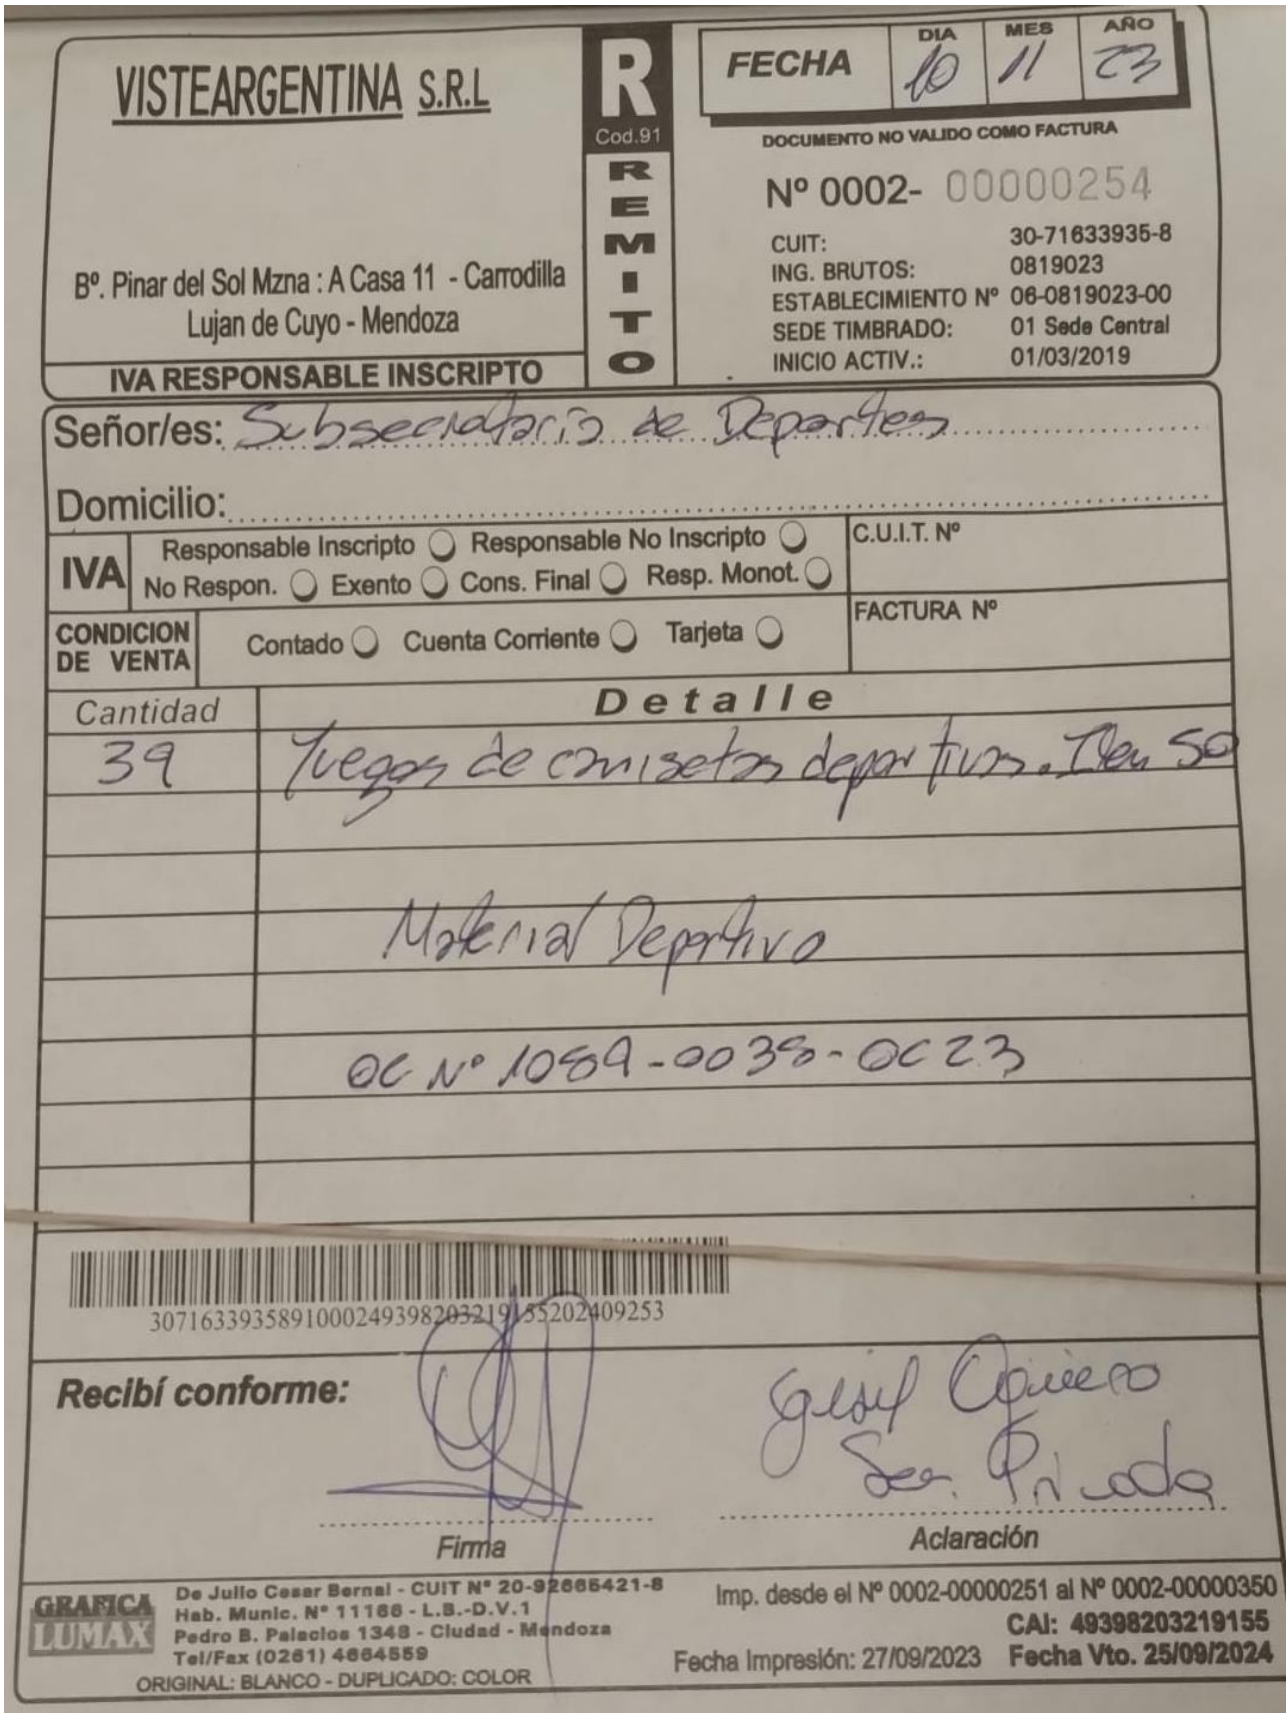 VISTEARGENTINA S.R.L
Bº. Pinar del Sol Mzna : A Casa 11 - Carrodilla
Lujan de Cuyo - Mendoza
IVA RESPONSABLE INSCRIPTO
R
Cod.91
REMITO
FECHA
DIA MES AÑO
10 11 23
DOCUMENTO NO VALIDO COMO FACTURA
Nº 0002- 00000254
CUIT: 30-71633935-8
ING. BRUTOS: 0819023
ESTABLECIMIENTO Nº 06-0819023-00
SEDE TIMBRADO: 01 Sede Central
INICIO ACTIV.: 01/03/2019
Señor/es: Subsecretaria de Deportes
Domicilio:
IVA
Responsable Inscripto Responsable No Inscripto
No Respon. Exento Cons. Final Resp. Monot.
C.U.I.T. Nº
CONDICION DE VENTA
Contado Cuenta Corriente Tarjeta
FACTURA Nº
Cantidad Detalle
39 Juegos de camisetas deportivas. Item 50
Material Deportivo
OC Nº 1089-0038-OC23
3071633935891000249398203219155202409253
Recibí conforme:
Sec. Privada
Firma
Aclaración
GRAFICA LUMAX
De Julio Cesar Bernal - CUIT Nº 20-92665421-8
Hab. Munic. Nº 11166 - L.B.-D.V.1
Pedro B. Palacios 1348 - Ciudad - Mendoza
Tel/Fax (0261) 4664559
ORIGINAL: BLANCO - DUPLICADO: COLOR
Imp. desde el Nº 0002-00000251 al Nº 0002-00000350
CAI: 49398203219155
Fecha Impresión: 27/09/2023 Fecha Vto. 25/09/2024